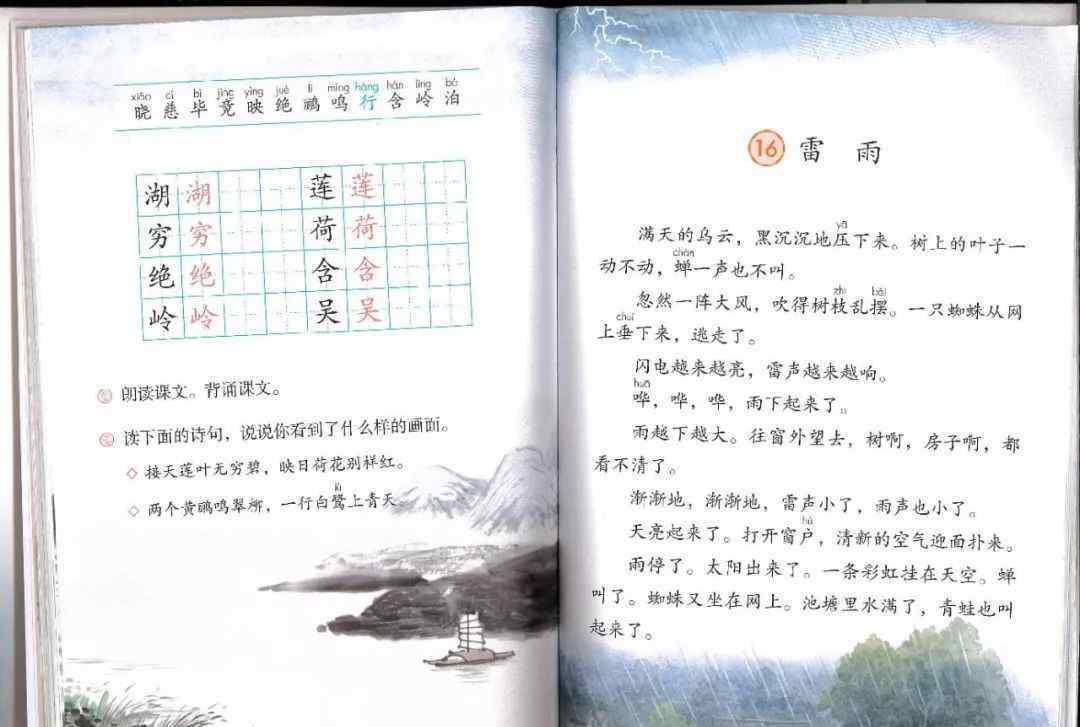 xiǎo cí bì jìng yìng jué lí míng háng hán lǐng bó
晓 慈 毕 竟 映 绝 鹂 鸣 行 含 岭 泊
湖 湖 莲 莲
穷 穷 荷 荷
绝 绝 含 含
岭 岭 吴 吴
朗读课文。背诵课文。
读下面的诗句，说说你看到了什么样的画面。
◇ 接天莲叶无穷碧，映日荷花别样红。
lù
◇ 两个黄鹂鸣翠柳，一行白鹭上青天。
16 雷 雨
yā
满天的乌云，黑沉沉地压下来。树上的叶子一
chán
动不动，蝉一声也不叫。
zhī bǎi
忽然一阵大风，吹得树枝乱摆。一只蜘蛛从网
chuí
上垂下来，逃走了。
闪电越来越亮，雷声越来越响。
huā
哗，哗，哗，雨下起来了。
雨越下越大。往窗外望去，树啊，房子啊，都
看不清了。
渐渐地，渐渐地，雷声小了，雨声也小了。
hù
天亮起来了。打开窗户，清新的空气迎面扑来。
雨停了。太阳出来了。一条彩虹挂在天空。蝉
叫了。蜘蛛又坐在网上。池塘里水满了，青蛙也叫
起来了。